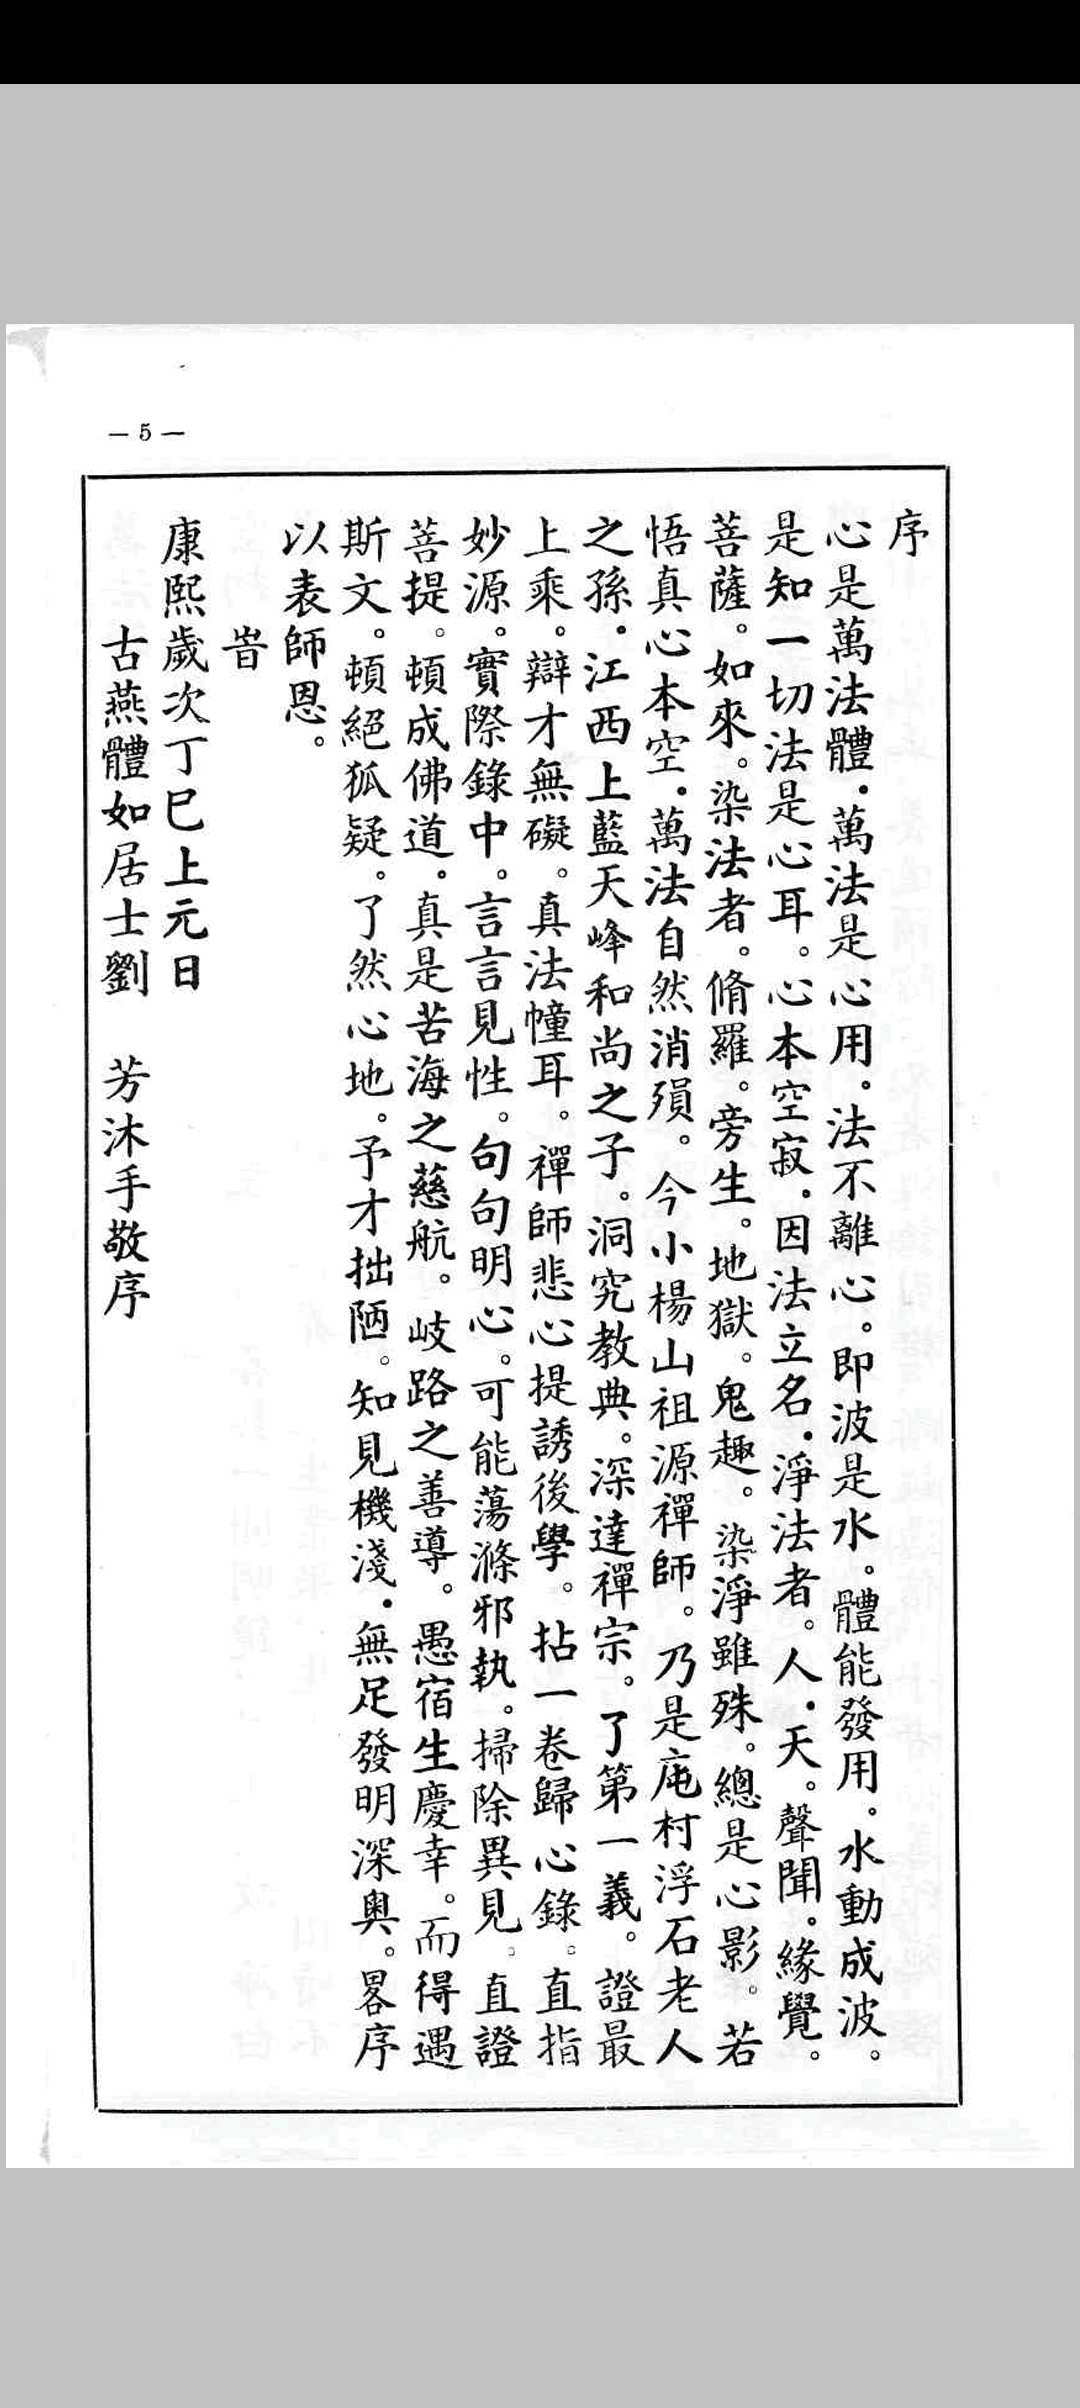 — 5 —
序
心是萬法體．萬法是心用。法不離心。即波是水。體能發用。水動成波。
是知一切法是心耳。心本空寂．因法立名．淨法者。人．天。聲聞。緣覺。
菩薩。如來。染法者。脩羅。旁生。地獄。鬼趣。染淨雖殊。總是心影。若
悟真心本空．萬法自然消殞。今小楊山祖源禪師。乃是庉村浮石老人
之孫．江西上藍天峰和尚之子。洞究教典。深達禪宗。了第一義。證最
上乘。辯才無礙。真法幢耳。禪師悲心提誘後學。拈一卷歸心錄。直指
妙源。實際錄中。言言見性。句句明心。可能蕩滌邪執。掃除異見。直證
菩提。頓成佛道。真是苦海之慈航。岐路之善導。愚宿生慶幸。而得遇
斯文。頓絕狐疑。了然心地。予才拙陋。知見機淺．無足發明深奥。畧序
以表師恩。
旹
康熙歲次丁巳上元日
古燕體如居士劉　芳沐手敬序